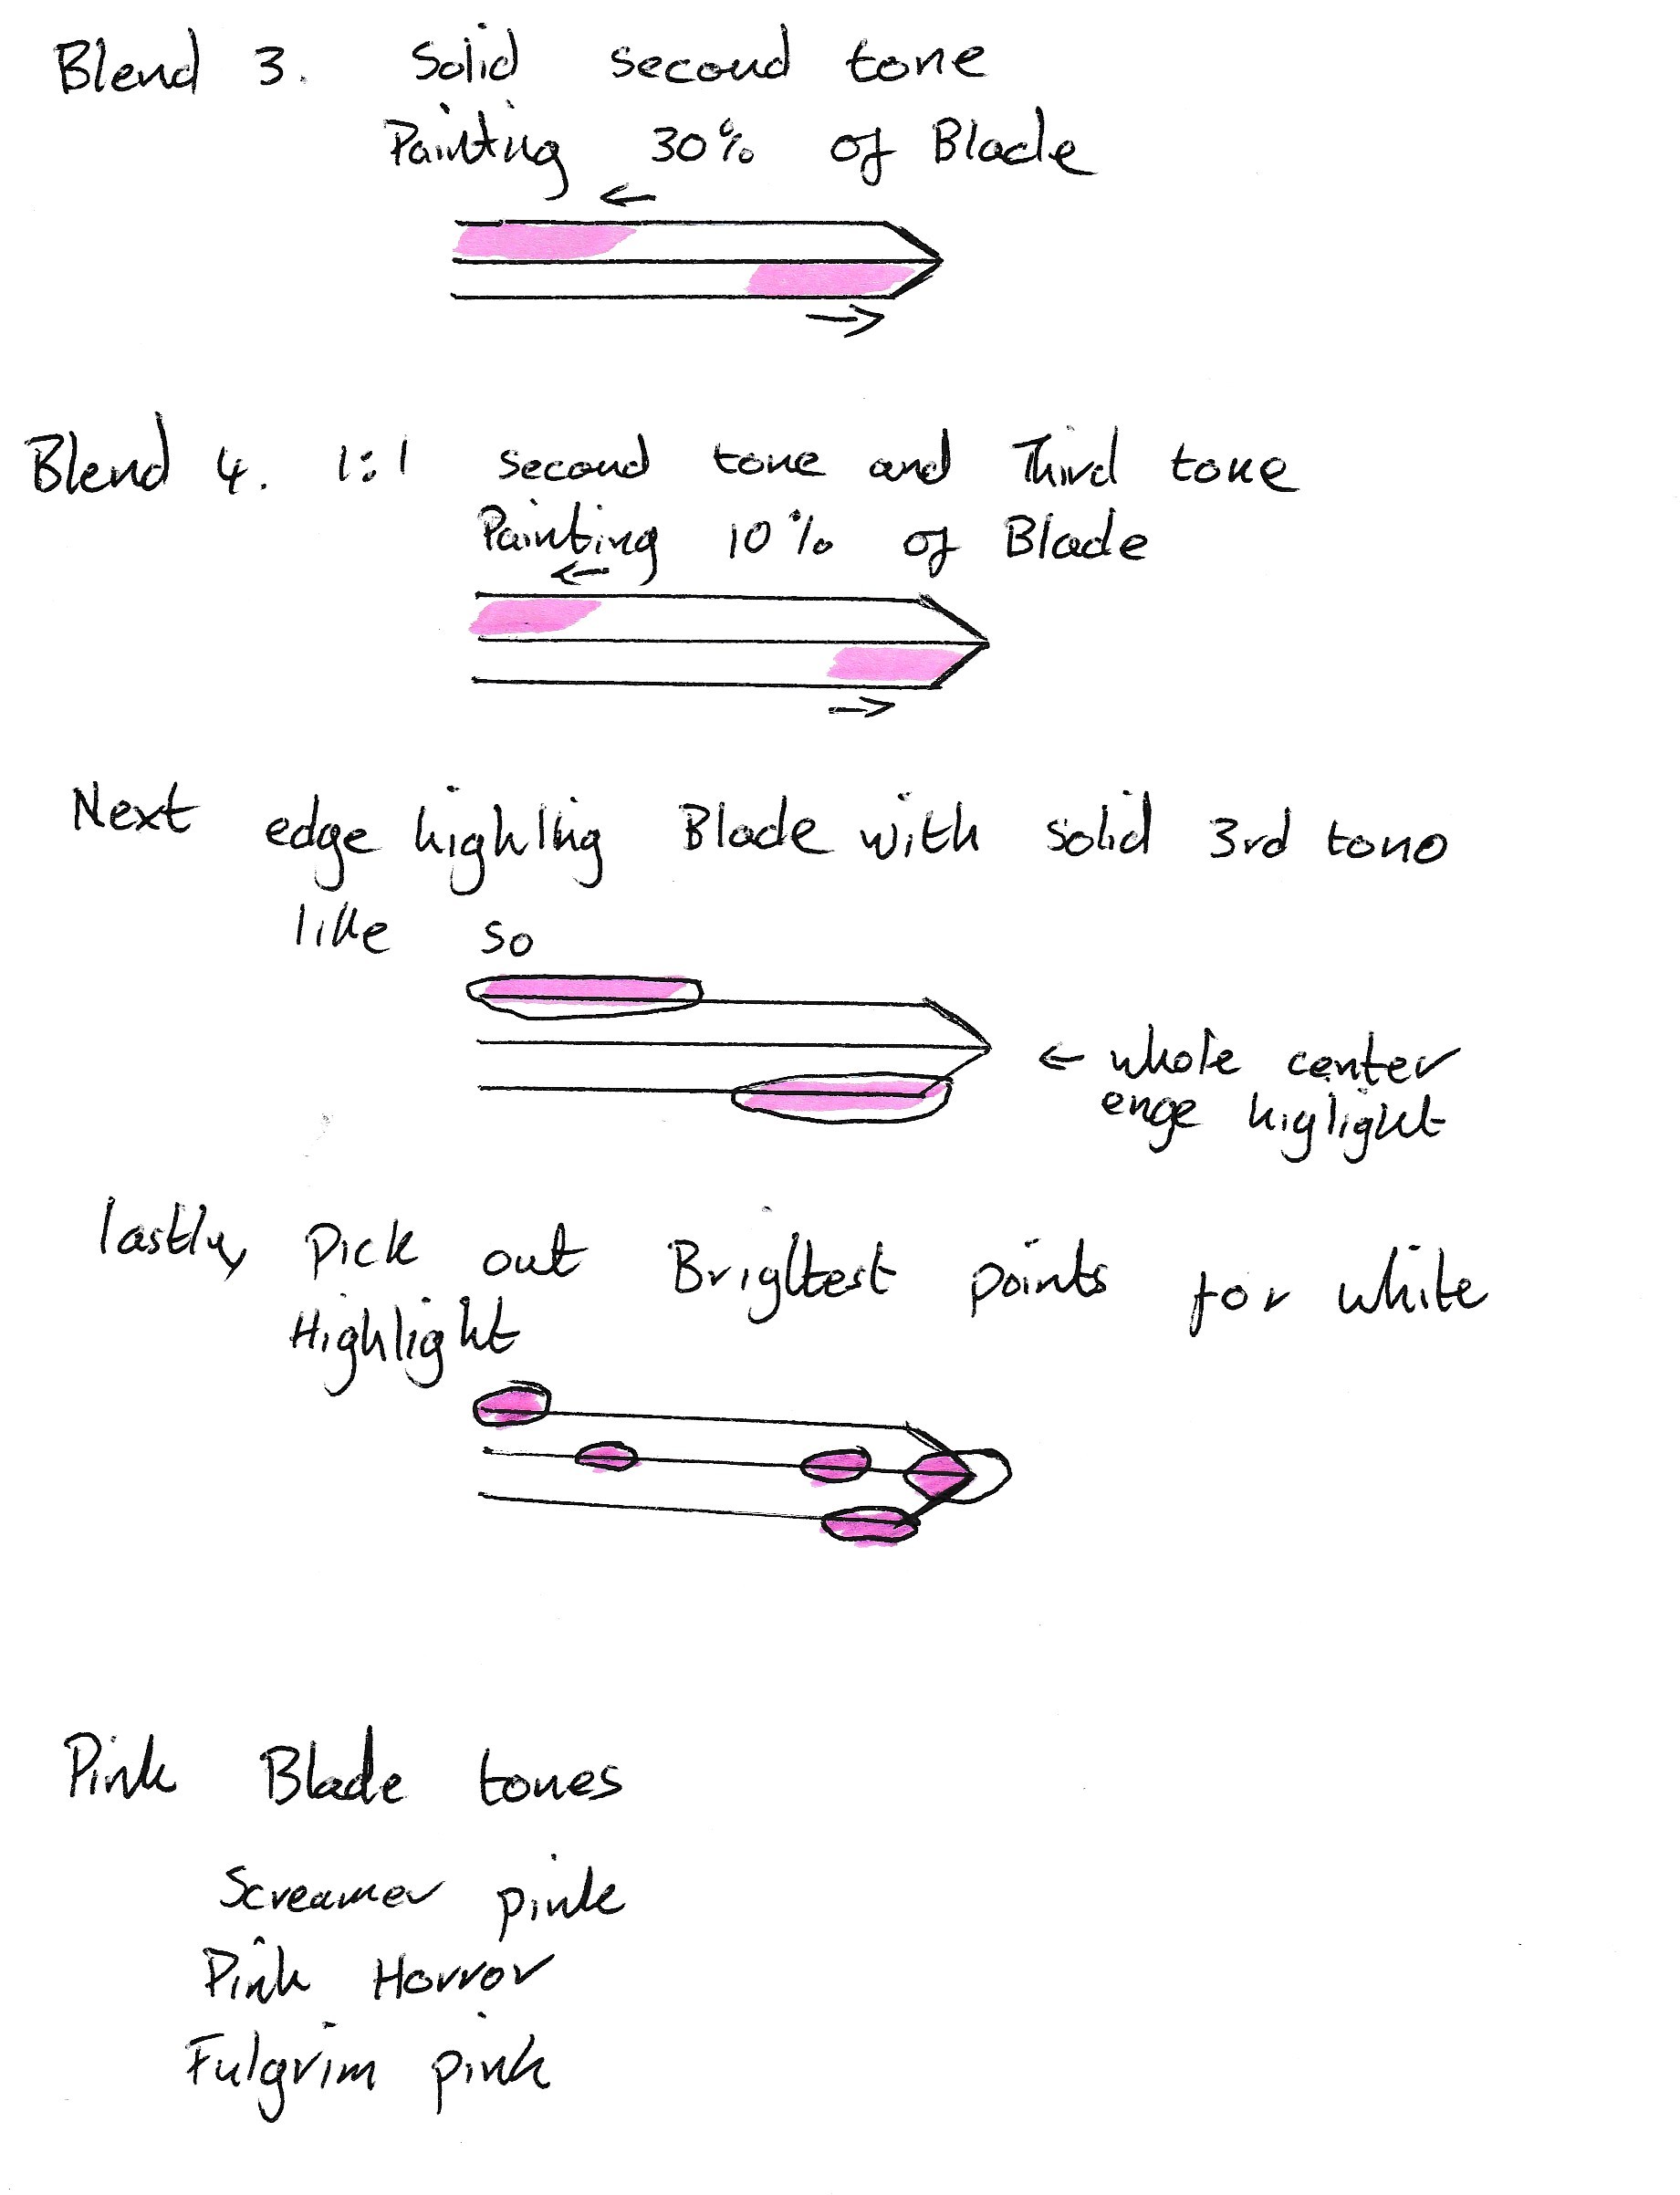 Blend 3. Solid second tone
Painting 30% of Blade
Blend 4. 1:1 second tone and Third tone
Painting 10% of Blade
Next edge highlihg Blade with solid 3rd tono
like so
← whole center
enge higlight
lastly Pick out Brigltest points for white
Highlight
Pink Blade tones
Screamer pink
Pink Horror
Fulgrim pink